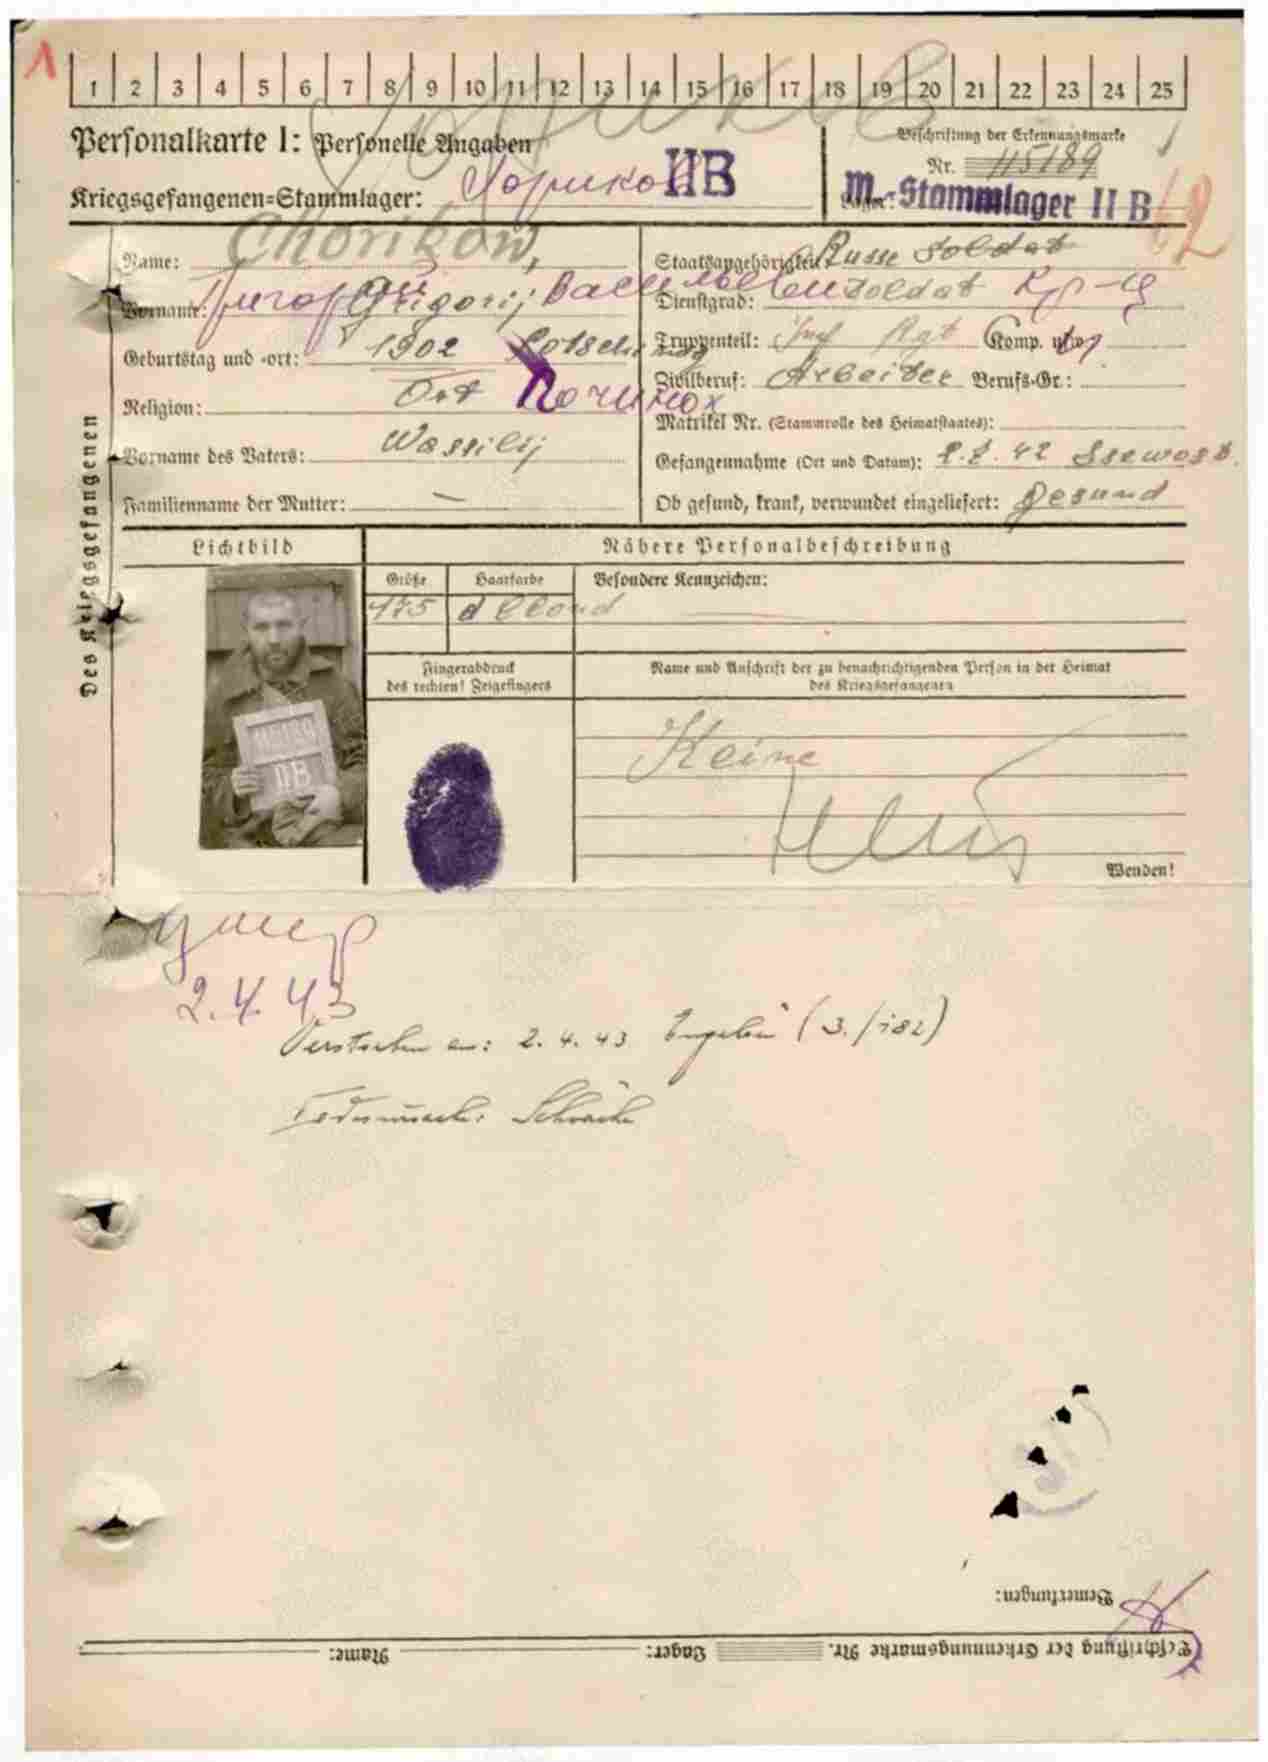 1
1 2 3 4 5 6 7 8 9 10 11 12 13 14 15 16 17 18 19 20 21 22 23 24 25
Хориков
Personalkarte I: Personelle Angaben
Beschriftung der Erkennungsmarke
Nr. 115189
Kriegsgefangenen=Stammlager: Хориков IIB
Lager: M.-Stammlager II B
62
Des Kriegsgefangenen
Name: Chorikow,
Vorname: Grigorij Григорий Васильевич
Geburtstag und -ort: 1902
Religion: Ort Починок
Vorname des Vaters: Wassilij
Familienname der Mutter: —
Staatsangehörigkeit: Russe Soldat
Dienstgrad: Soldat Кр-ц
Truppenteil: Inf Rgt Komp. usw.:
Zivilberuf: Arbeiter Berufs-Gr.:
Matrikel Nr. (Stammrolle des Heimatstaates):
Gefangennahme (Ort und Datum): 42 Ssewost.
Ob gesund, krank, verwundet eingeliefert: Gesund
Lichtbild
Nähere Personalbeschreibung
Größe Haarfarbe Besondere Kennzeichen:
175 d blond
115189
IIB
Fingerabdruck
des rechten! Zeigefingers
Name und Anschrift der zu benachrichtigenden Person in der Heimat
des Kriegsgefangenen
Keine
Wenden!
Умер
2.4.43
Verstorben am: 2.4.43 (3./182)
Todesursache: Schwäche
Bemerkungen:
Beschriftung der Erkennungsmarke Nr. Lager: Name: